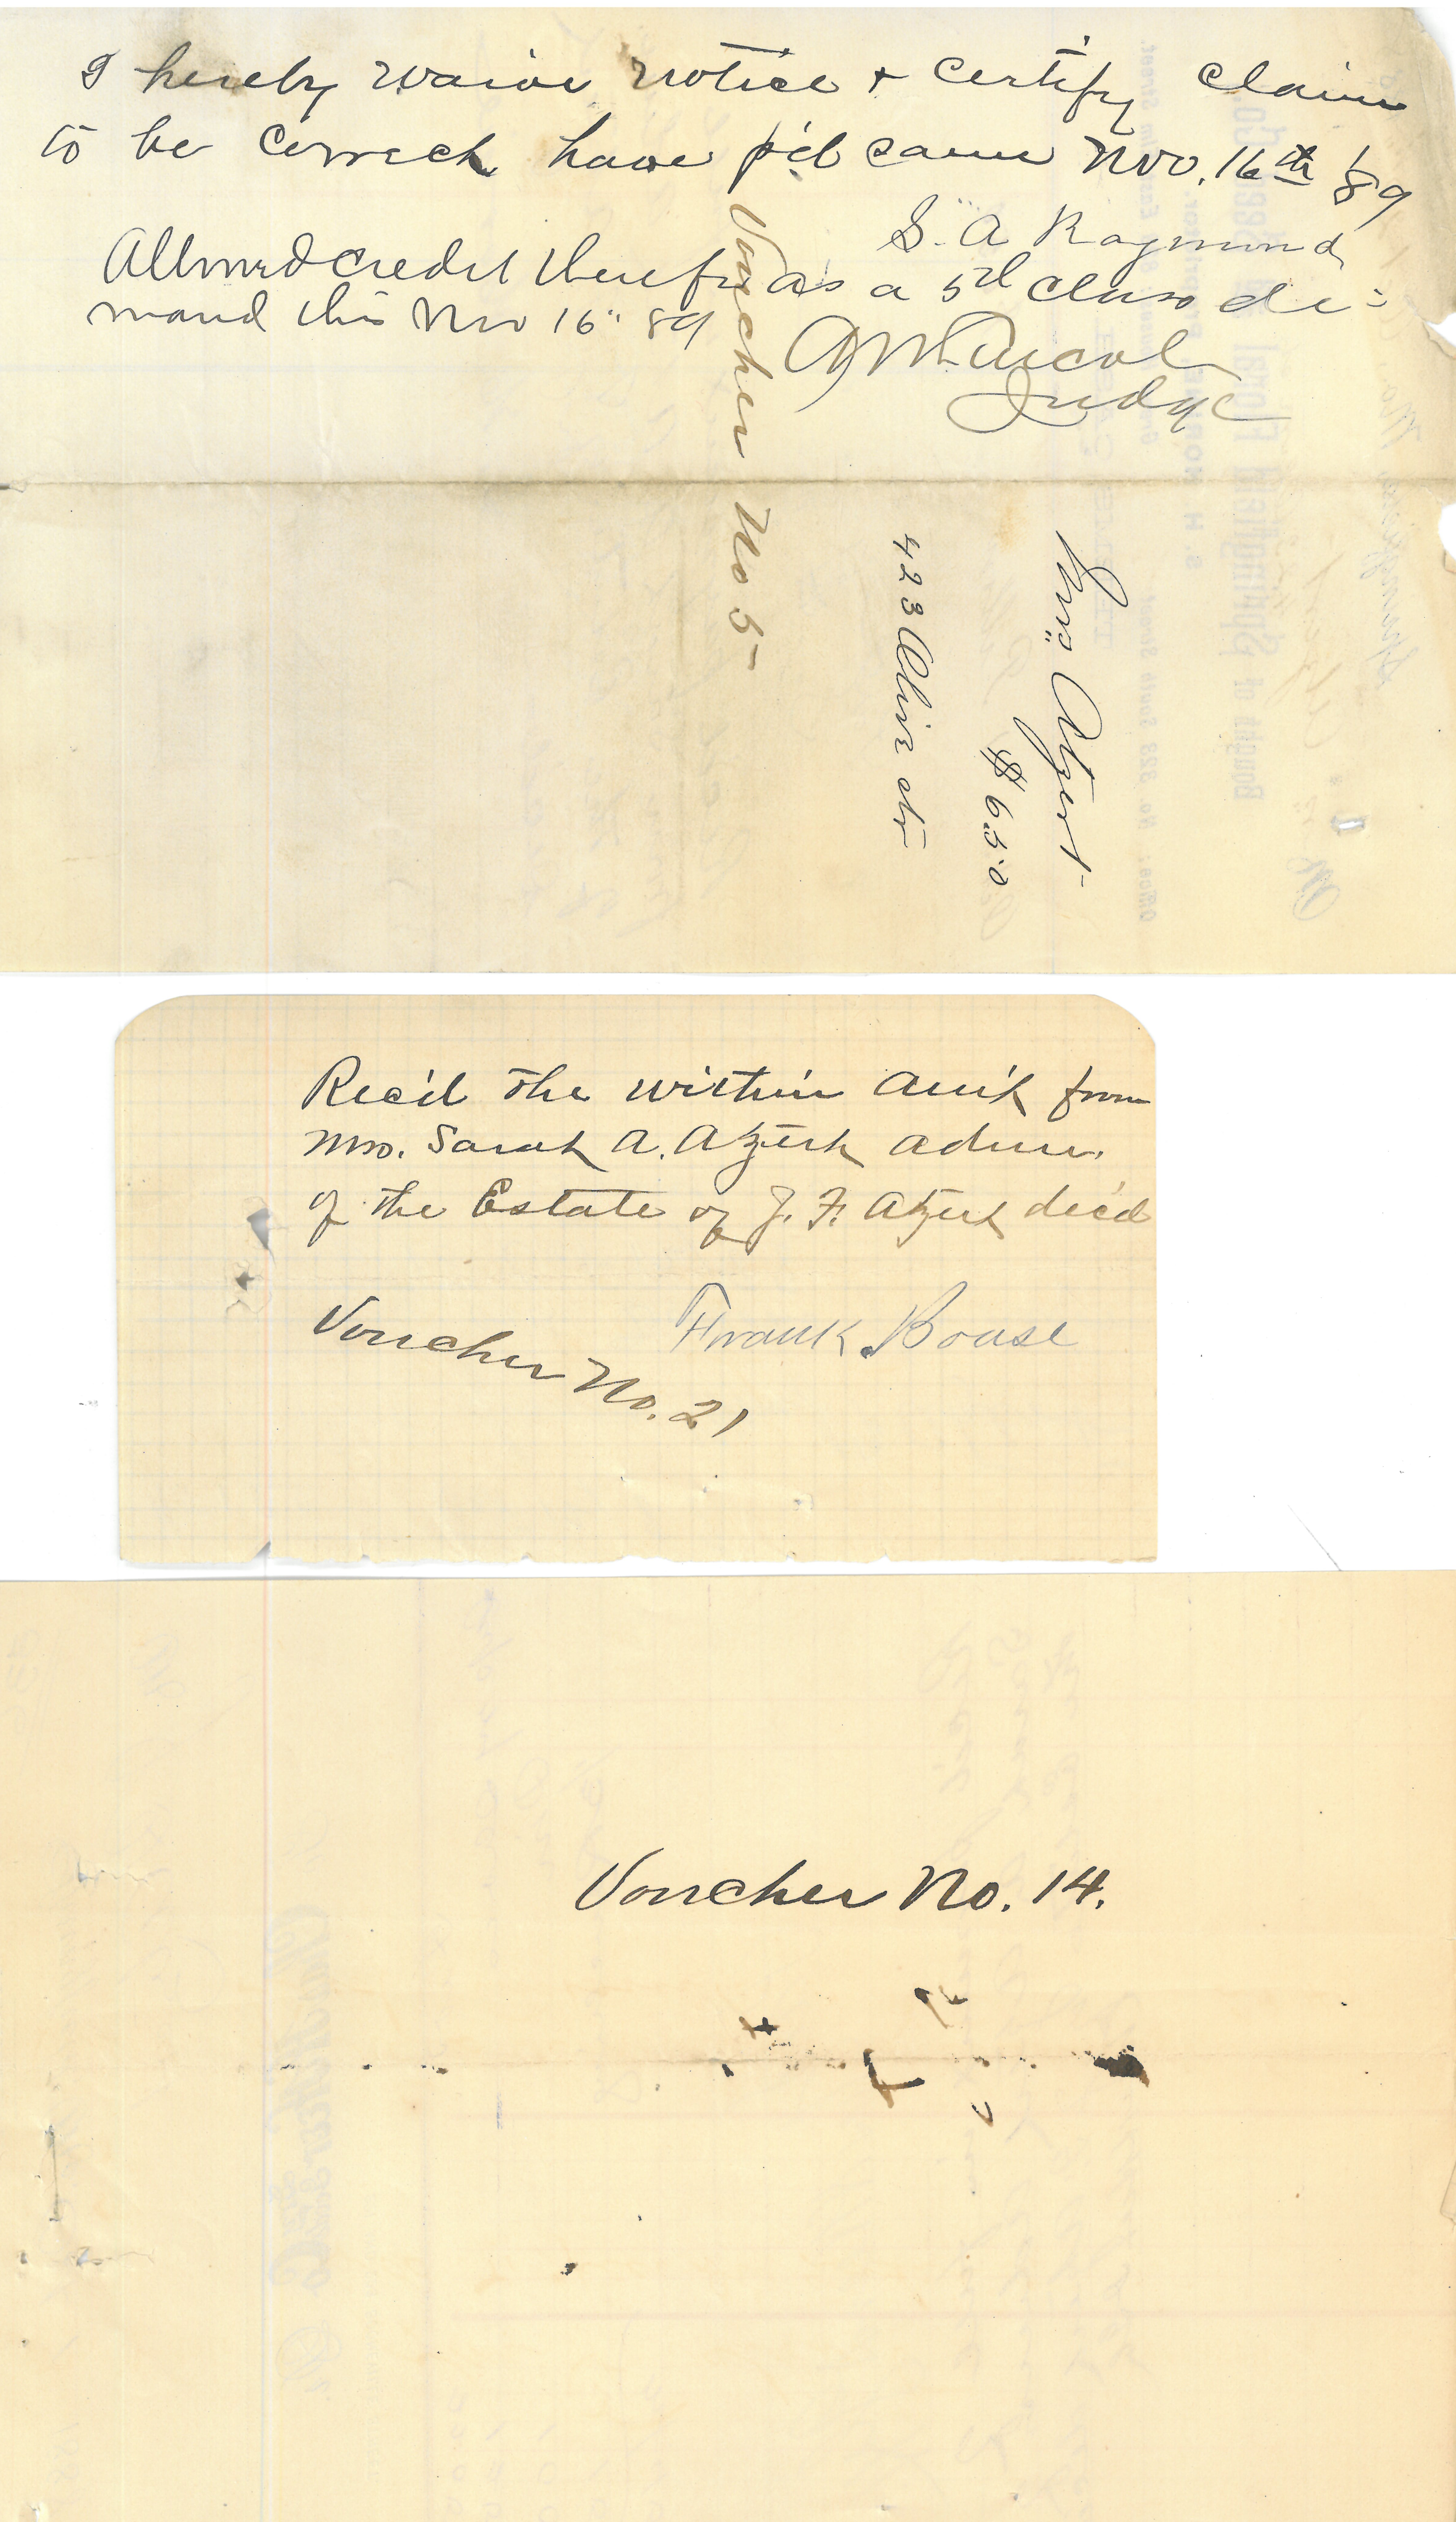 I hereby waive notice + certify claim
to be correct have p'd same Nov. 16th 1/89
S. A Raymond
Allowed credit therefor as a 5th class de=
mand this Nov 16" 89
Judge
Voucher No 5-
Mrs Atzert
$6.50
423 str
Rec'd the within am't from
Mrs. Sarah A. Atzert admr.
of the Estate of J. F. Atzert dec'd
Frank Bouse
Voucher No. 21
Voucher No. 14.